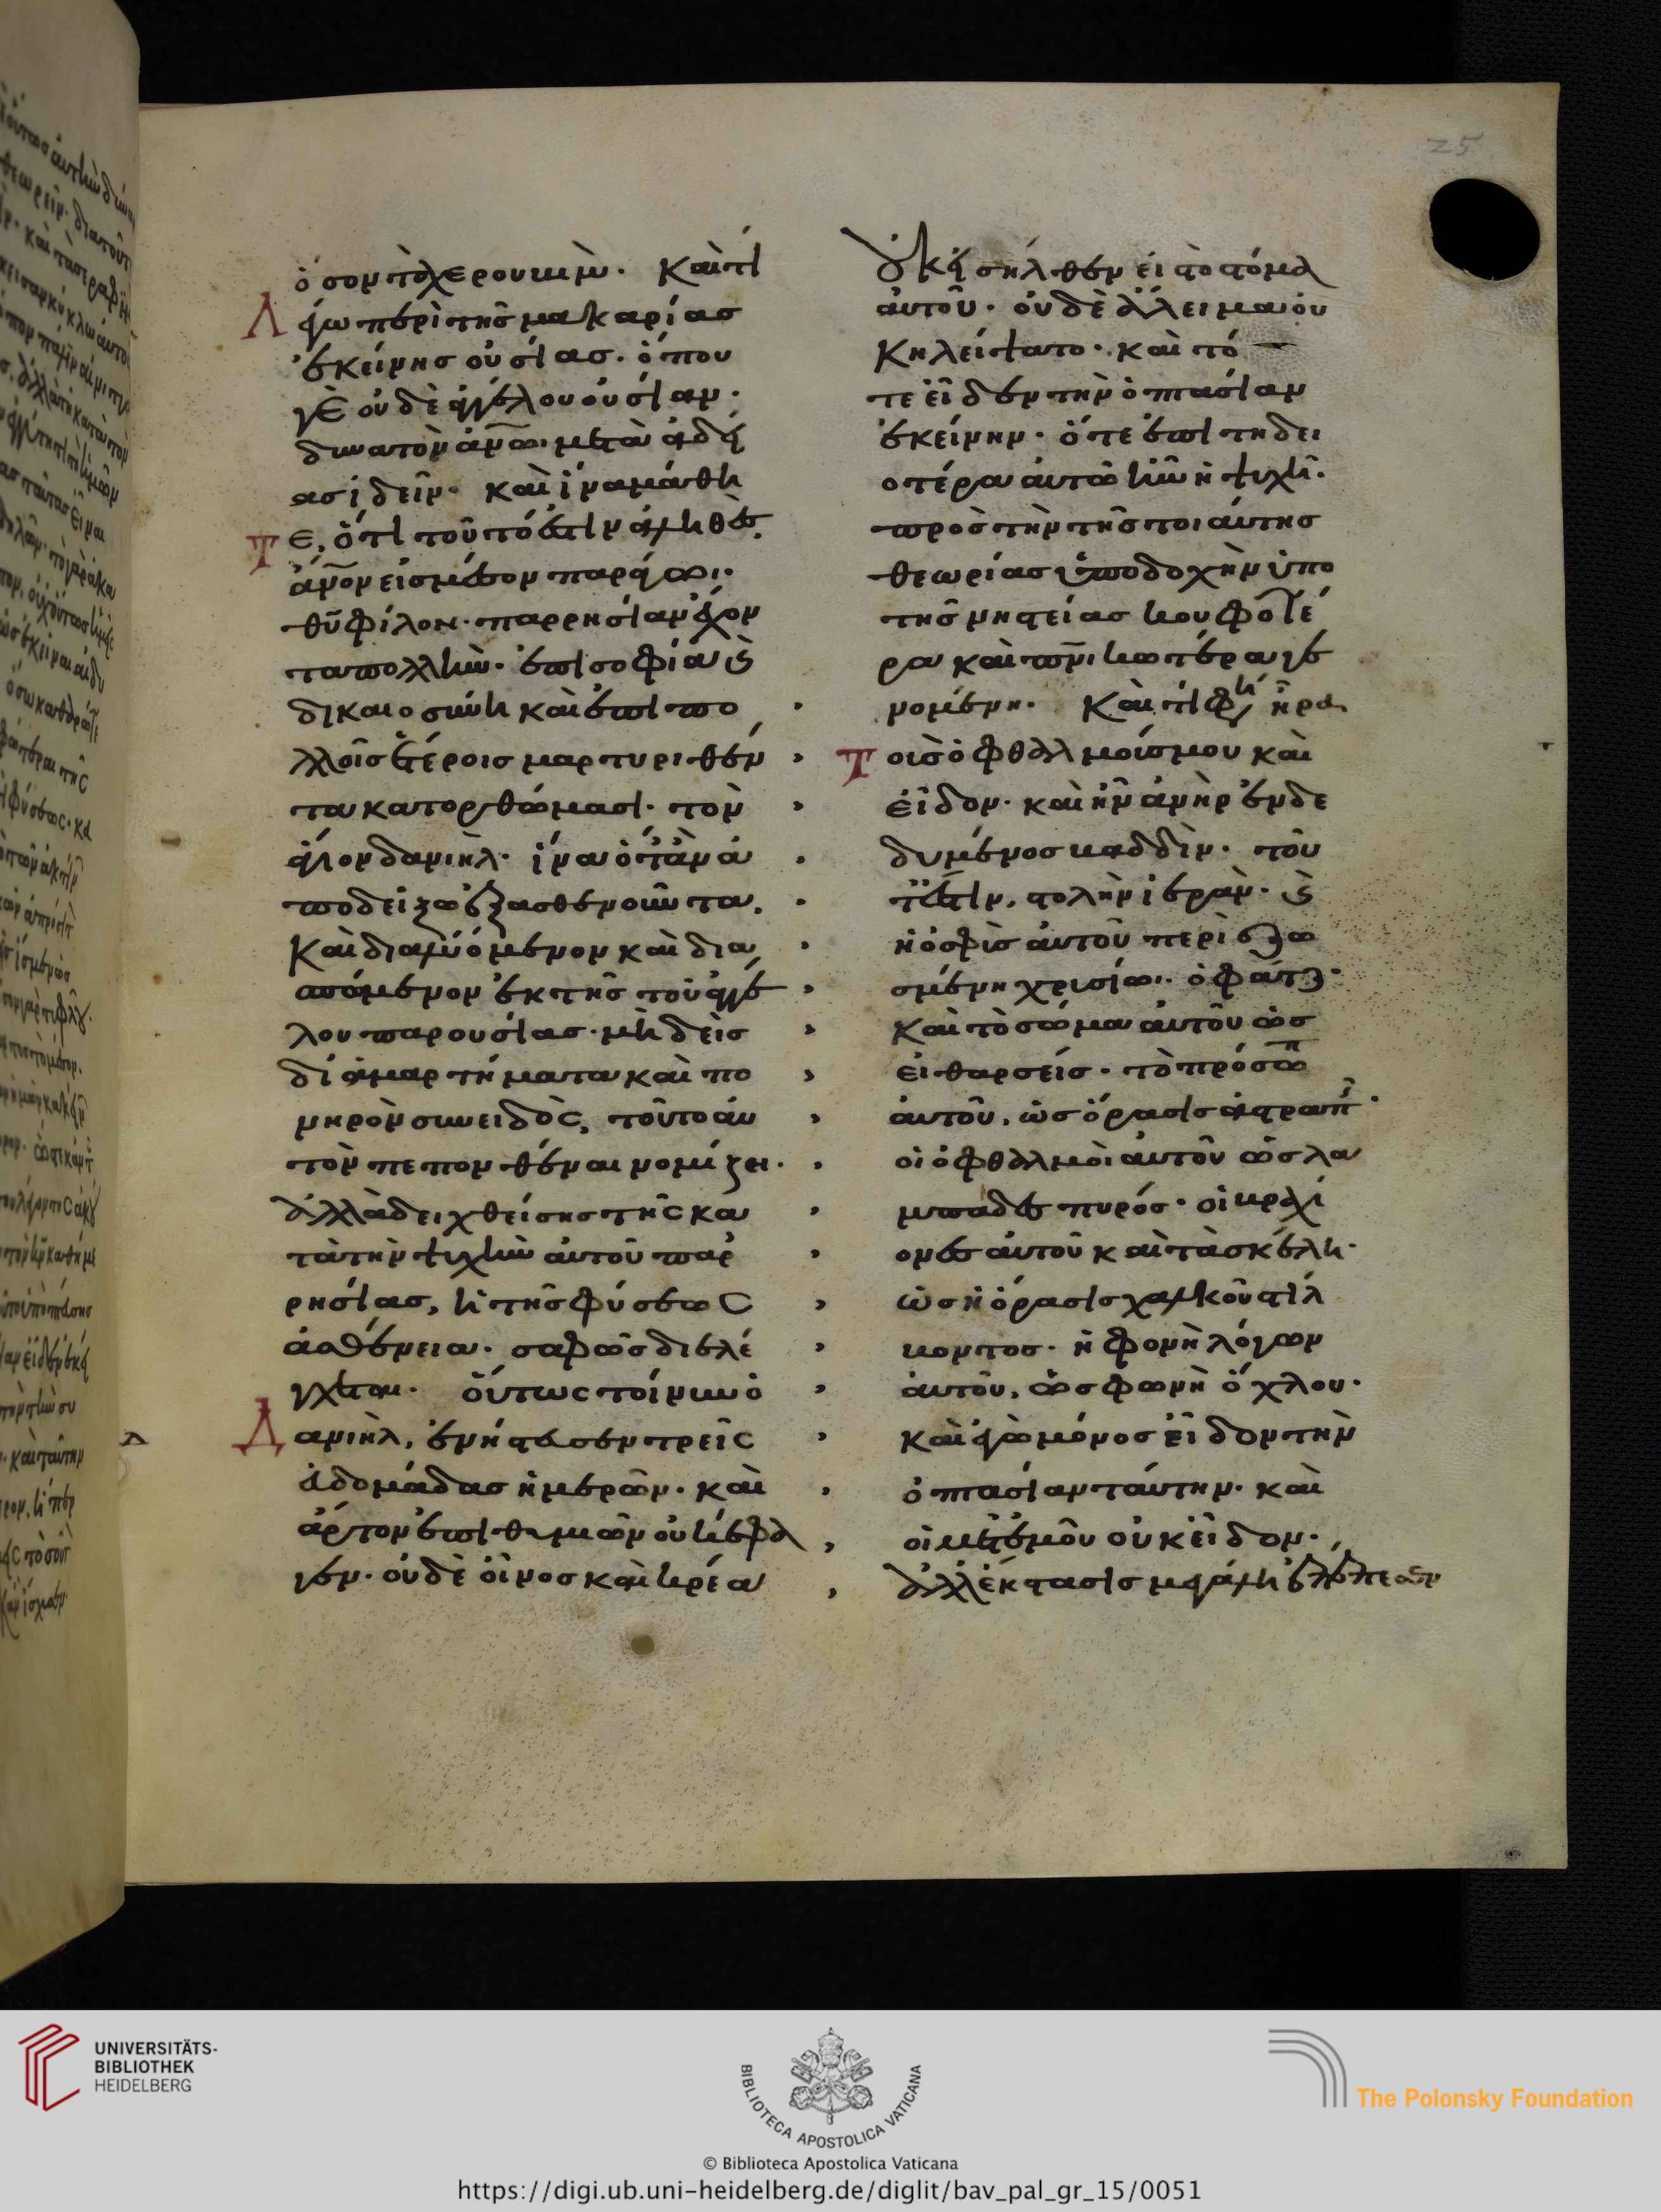 25
ὅσον τὸ χερουικὸν. Καὶ τί
Λέγω περὶ τῆς μακαρίας
ἐκείνης οὐσίας. ὅπου
γε οὐδὲ ἀγγέλου οὐσίαν.
δυνατὸν ἀνῶι μετὰ ἀδεί
ας ἰδεῖν. καὶ ἵνα μάθη
Τε, ὅτι τοῦτό ἐστιν ἀληθὲς.
ἄνον εἰς μέσον παράγωι.
θῦ φίλον. παρρησίαν ἔχον
τα πολλὴν. ἐπὶ σοφία ϗ
δικαιοσύνη καὶ ἐπὶ πο
λλοῖς ἑτέροις μαρτυριθέν
τα κατορθώμασι. τὸν
ἅγιον δανιὴλ. ἵνα ὅταν ἀ
ποδείξω ἐξασθενοῦντα.
Καὶ διαλυόμενον καὶ δια
σπόμενον ἐκ τῆς τοῦ ἀγγέ
λου παρουσίας. μὴ δεὶς
δι ἁμαρτήματα καὶ πο
νηρὸν συνειδὸς, τοῦτο αυ
τὸν πεπονθέναι νομίζει.
ἀλλὰ δειχθείσης τῆς κα
τὰ τὴν ψυχὴν αὐτοῦ παρ
ρησίας, ἡ τῆς φύσεως
ἀσθένεια. σαφῶς διελέ
γχεται. οὕτως τοίνυν ὁ
Δανιὴλ, ἐνήστευσεν τρεῖς
ἑδομάδας ἡμερῶν. καὶ
ἄρτον ἐπιθυμιῶν οὐκ ἔφα
γεν. οὐδὲ οἶνος καὶ κρέα
οὐκ εἰσῆλθεν εἰ το στόμα
αὐτοῦ. οὐδὲ ἄλειμα οὐ
κ ηλείψατο. καὶ τό
τε εἶδεν τὴν ὀπτασίαν
ἐκείνην. ὅτε ἐπιτηδει
οτέρα αὐτῶ ἦν ἡ ψυχὴ.
πρὸς τὴν τῆς τοιαύτης
θεωρίας ὑποδοχὴν ὑπο
τῆς νηστείας κουφοτέ
ρα καὶ πνικωτέρα γε
νομένη. Καὶ τί φησὶ ἦρα
Τοὶς ὀφθαλμοίς μου καὶ
εἶδον. καὶ ἦν ἀνὴρ ἐνδε
δυμένος βαδδὶν. τοῦ
τέστιν, στολὴν ἱερὰν. ϗ
ἡ ὀσφὺς αὐτοῦ περιεζω
σμένη χρυσίω. ὀφάτζ.
Καὶ τὸ σώμα αὐτοῦ ὡς
εἰ θαρσείς. τὸ πρόσωπ
αὐτοῦ, ὡς ὅρασις ἀστραπῆ.
οἱ ὀφθαλμοὶ αὐτοῦ ὡς λα
μπαδες πυρός. οἱ βραχί
ονες αὐτοῦ καὶ τὰ σκέλη.
ὡς ἡ ὅρασις χαλκοῦ στίλ
βοντος. ἡ φονὴ λόγων
αὐτοῦ, ὡς φωνὴ ὄχλου.
Καὶ ἐγὼ μόνος εἶδον τὴν
ὀπτασίαν ταύτην. καὶ
οἱ μετ ἐμοῦ οὐκ εἶδον.
ἀλλ ἔκστασις μεγάλη ἐπέπεσεν
UNIVERSITÄTS-
BIBLIOTHEK
HEIDELBERG
BIBLIOTECA APOSTOLICA VATICANA
© Biblioteca Apostolica Vaticana
The Polonsky Foundation
https://digi.ub.uni-heidelberg.de/diglit/bav_pal_gr_15/0051